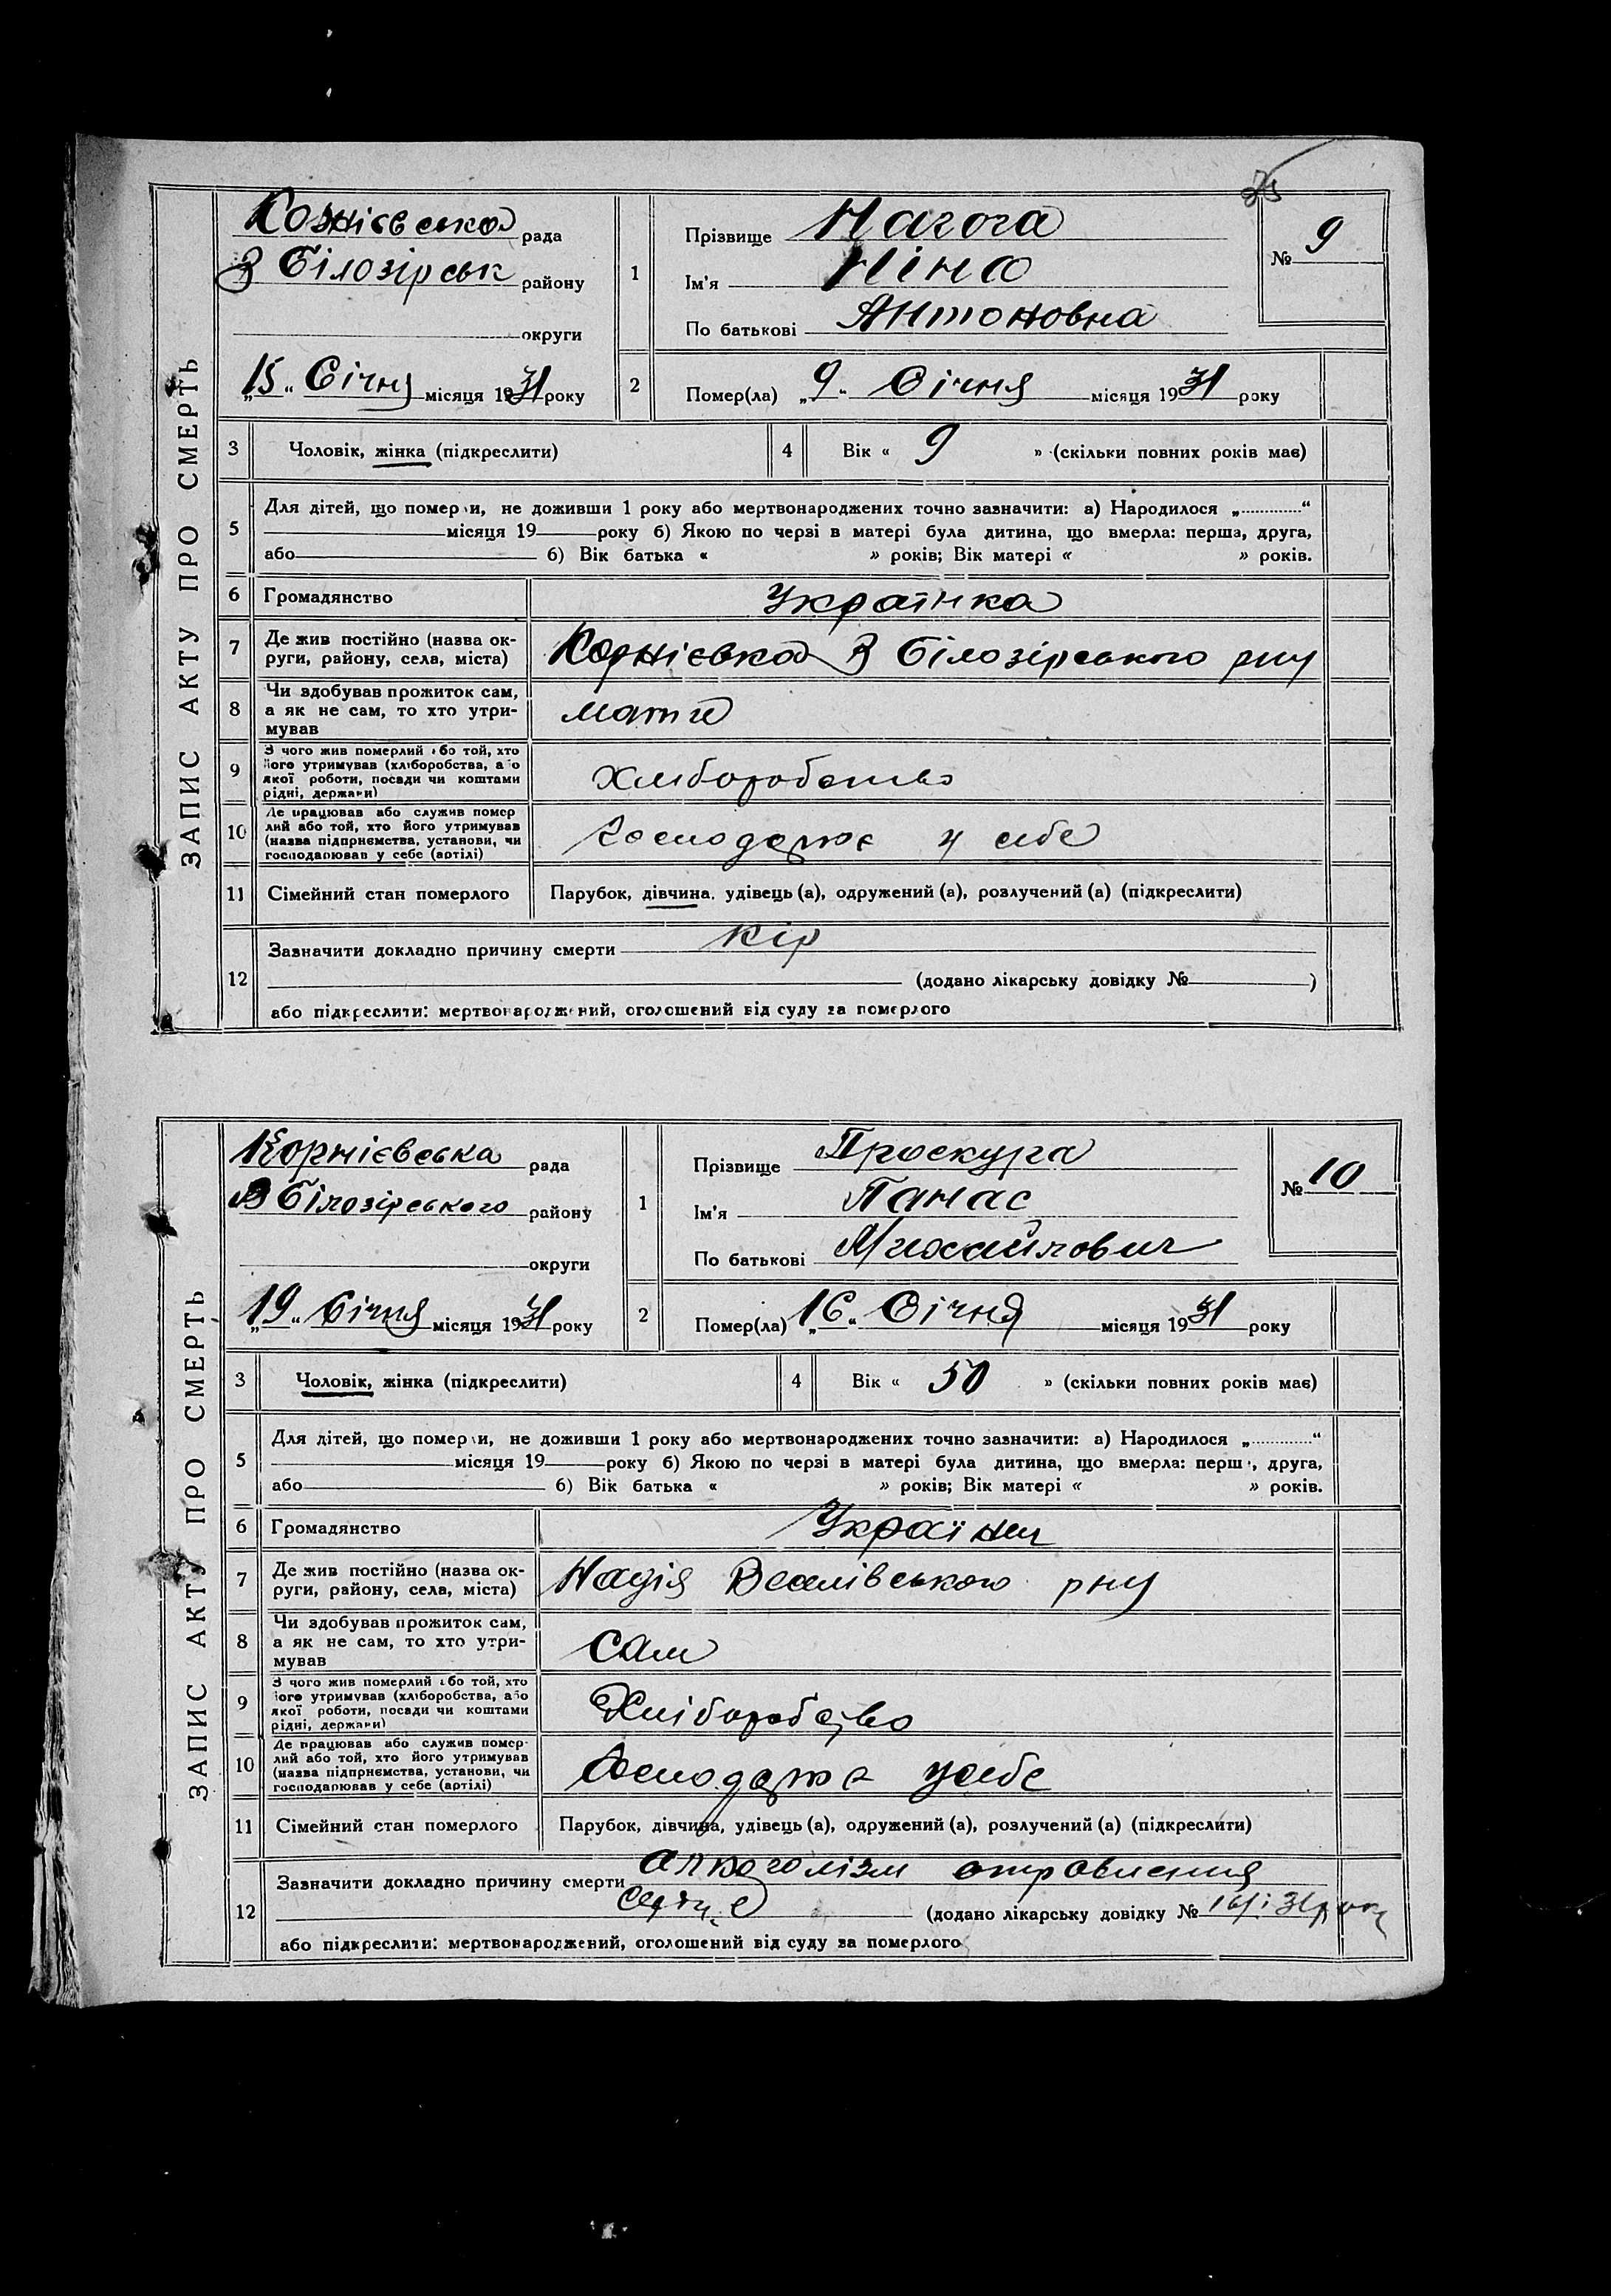 25
ЗАПИС АКТУ ПРО СМЕРТЬ
Корнієвська рада
В Білозірськ району
округи
„15“ Січня місяця 1931 року
1
Прізвище Нагога
Ім'я Ніна
По батькові Антоновна
№ 9
2
Помер(ла) „9“ Січня місяця 1931 року
3
Чоловік, жінка (підкреслити)
4
Вік « 9 » (скільки повних років має)
5
Для дітей, що померли, не доживши 1 року або мертвонароджених точно зазначити: а) Народилося „............“
місяця 19 року б) Якою по черзі в матері була дитина, що вмерла: перша, друга,
або б) Вік батька « » років; Вік матері « » років.
6
Громадянство
Українка
7
Де жив постійно (назва ок-
руги, району, села, міста)
Корнієвка В Білозірського рну
8
Чи здобував прожиток сам,
а як не сам, то хто утри-
мував
мати
9
З чого жив померлий або той, хто
його утримував (хліборобства, або
якої роботи, посади чи коштами
рідні, держави)
Хліборобство
10
Де працював або служив помер
лий або той, хто його утримував
(назва підприємства, установи, чи
господарював у себе (артілі)
Господарює у себе
11
Сімейний стан померлого
Парубок, дівчина, удівець (а), одружений (а), розлучений (а) (підкреслити)
12
Зазначити докладно причину смерти кір
(додано лікарську довідку № )
або підкреслити: мертвонароджений, оголошений від суду за померлого
ЗАПИС АКТУ ПРО СМЕРТЬ
Корнієвська рада
В Білозірського району
округи
„19“ Січня місяця 1931 року
1
Прізвище Проскура
Ім'я Панас
По батькові Михайлович
№ 10
2
Помер(ла) „16“ Січня місяця 1931 року
3
Чоловік, жінка (підкреслити)
4
Вік « 50 » (скільки повних років має)
5
Для дітей, що померли, не доживши 1 року або мертвонароджених точно зазначити: а) Народилося „............“
місяця 19 року б) Якою по черзі в матері була дитина, що вмерла: перша, друга,
або б) Вік батька « » років; Вік матері « » років.
6
Громадянство
Українец
7
Де жив постійно (назва ок-
руги, району, села, міста)
Надія Веселівського рну
8
Чи здобував прожиток сам,
а як не сам, то хто утри-
мував
Сам
9
З чого жив померлий або той, хто
його утримував (хліборобства, або
якої роботи, посади чи коштами
рідні, держави)
Хліборобство
10
Де працював або служив помер-
лий або той, хто його утримував
(назва підприємства, установи, чи
господарював у себе (артілі)
Господарює усебе
11
Сімейний стан померлого
Парубок, дівчина, удівець (а), одружений (а), розлучений (а) (підкреслити)
12
Зазначити докладно причину смерти алкоголізм отравлення
(додано лікарську довідку №
або підкреслити: мертвонароджений, оголошений від суду за померлого